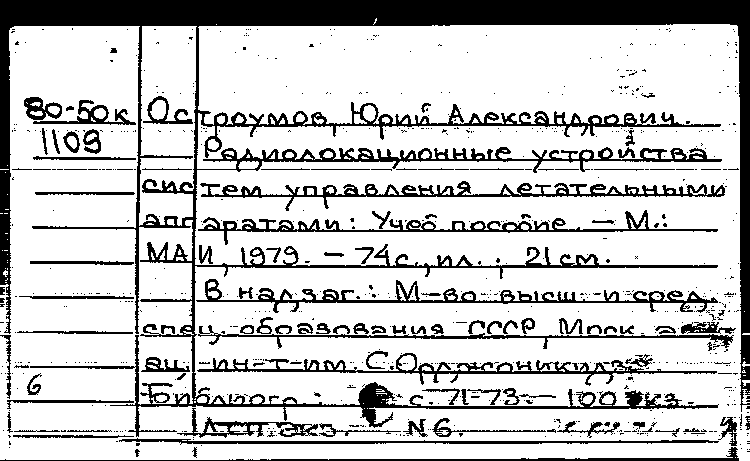 80-50к Остроумов, Юрий Александрович.
1109 Радиолокационные устройства
систем управления летательными
аппаратами: Учеб. пособие. — М.:
МАИ, 1979. — 74 с., ил.; 21 см.
В надзаг.: М-во высш. и сред.
спец. образования СССР, Моск.
ац. ин-т им. С. Орджоникидзе
6 Библиогр.: с. 71-73. — 100 экз.
экз. N 6.